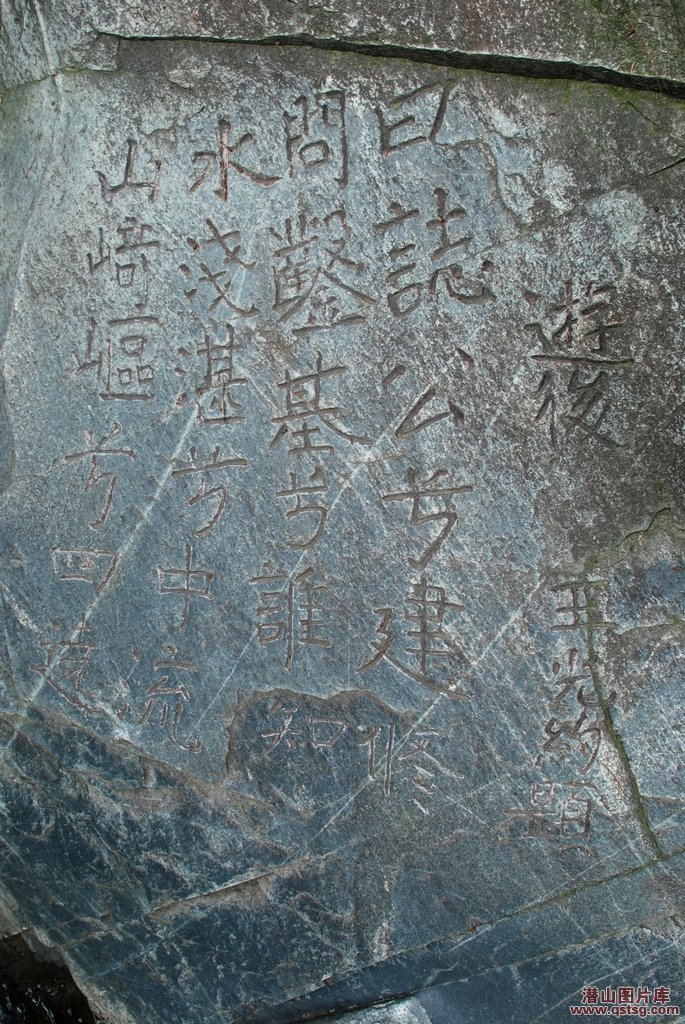 遊後 王光約題
曰誌公兮建修
問鑿基兮誰知
水浅湛兮中流
山崎嶇兮四
潜山图片库
www.qstsg.com